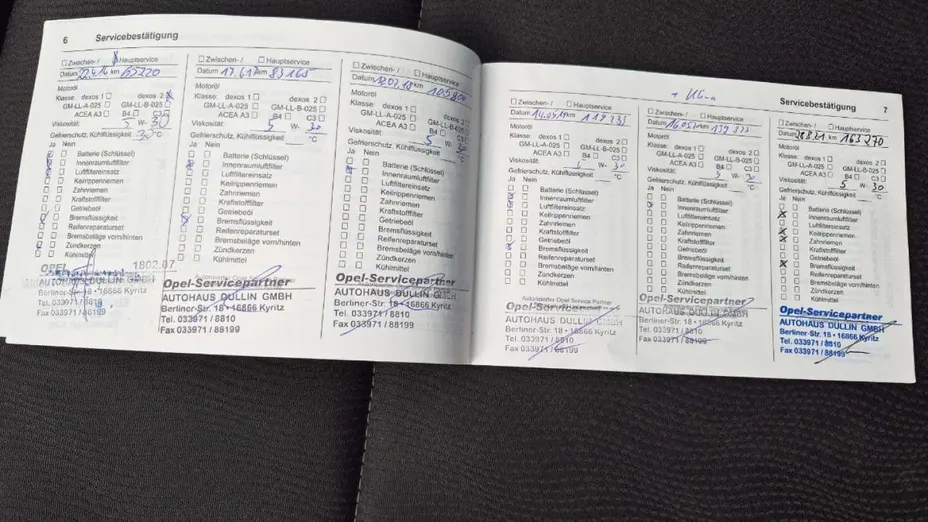 6 Servicebestätigung
☐ Zwischen- / ☐ Hauptservice
Datum 22.4.16 km 65220
Motoröl
Klasse: dexos 1 ☐ dexos 2
GM-LL-A-025 ☐ GM-LL-B-025 ☐
ACEA A3 ☐ B4 ☐ C3 ☐
Viskosität: 5 W- 30
Gefrierschutz, Kühlflüssigkeit 30 °C
Ja Nein
Batterie (Schlüssel)
Innenraumluftfilter
Luftfiltereinsatz
Keilrippenriemen
Zahnriemen
Kraftstofffilter
Getriebeöl
Bremsflüssigkeit
Reifenreparaturset
Bremsbeläge vorn/hinten
Zündkerzen
Kühlmittel
OPEL 1802.07
AUTOHAUS DULLIN GMBH
Berliner-Str. 18 • 16866 Kyritz
Tel. 033971 / 8810
Fax 033971 / 88199
☐ Zwischen- / ☐ Hauptservice
Datum km 83165
Motoröl
Klasse: dexos 1 ☐ dexos 2 ☐
GM-LL-A-025 ☐ GM-LL-B-025 ☐
ACEA A3 ☐ B4 ☐ C3 ☐
Viskosität: 5 W- 30
Gefrierschutz, Kühlflüssigkeit °C
Ja Nein
Batterie (Schlüssel)
Innenraumluftfilter
Luftfiltereinsatz
Keilrippenriemen
Zahnriemen
Kraftstofffilter
Getriebeöl
Bremsflüssigkeit
Reifenreparaturset
Bremsbeläge vorn/hinten
Zündkerzen
Kühlmittel
Autorisierter Opel Service Partner
Opel-Servicepartner
AUTOHAUS DULLIN GMBH
Berliner-Str. 18 • 16866 Kyritz
Tel. 033971 / 8810
Fax 033971 / 88199
☐ Zwischen- / ☐ Hauptservice
Datum km
Motoröl
Klasse: dexos 1 ☐ dexos 2 ☐
GM-LL-A-025 ☐ GM-LL-B-025 ☐
ACEA A3 ☐ B4 ☐ C3 ☐
Viskosität: 5 W- 30
Gefrierschutz, Kühlflüssigkeit °C
Ja Nein
Batterie (Schlüssel)
Innenraumluftfilter
Luftfiltereinsatz
Keilrippenriemen
Zahnriemen
Kraftstofffilter
Getriebeöl
Bremsflüssigkeit
Reifenreparaturset
Bremsbeläge vorn/hinten
Zündkerzen
Kühlmittel
Opel-Servicepartner
AUTOHAUS DULLIN GMBH
Berliner-Str. 18 • 16866 Kyritz
Tel. 033971 / 8810
Fax 033971 / 88199
☐ Zwischen- / ☐ Hauptservice
Datum km
Motoröl
Klasse: dexos 1 ☐ dexos 2 ☐
GM-LL-A-025 ☐ GM-LL-B-025 ☐
ACEA A3 ☐ B4 ☐ C3 ☐
Viskosität: 5 W- 30
Gefrierschutz, Kühlflüssigkeit °C
Ja Nein
Batterie (Schlüssel)
Innenraumluftfilter
Luftfiltereinsatz
Keilrippenriemen
Zahnriemen
Kraftstofffilter
Getriebeöl
Bremsflüssigkeit
Bremsbeläge vorn/hinten
Reifenreparaturset
Zündkerzen
Kühlmittel
Autorisierter Opel Service Partner
Opel-Servicepartner
AUTOHAUS DULLIN GMBH
Berliner-Str. 18 • 16866 Kyritz
Tel. 033971 / 8810
Fax 033971 / 88199
☐ Zwischen- / ☐ Hauptservice
Datum km
Motoröl
Klasse: dexos 1 ☐ dexos 2 ☐
GM-LL-A-025 ☐ GM-LL-B-025 ☐
ACEA A3 ☐ B4 ☐ C3 ☐
Viskosität: 5 W- 30
Gefrierschutz, Kühlflüssigkeit °C
Ja Nein
Batterie (Schlüssel)
Innenraumluftfilter
Luftfiltereinsatz
Keilrippenriemen
Zahnriemen
Kraftstofffilter
Getriebeöl
Bremsflüssigkeit
Reifenreparaturset
Bremsbeläge vorn/hinten
Zündkerzen
Kühlmittel
Opel-Servicepartner
AUTOHAUS DULLIN GMBH
Berliner-Str. 18 • 16866 Kyritz
Tel. 033971 / 8810
Fax 033971 / 88199
Servicebestätigung 7
☐ Zwischen- / ☐ Hauptservice
Datum km 163270
Motoröl
Klasse: dexos 1 ☐ dexos 2 ☐
GM-LL-A-025 ☐ GM-LL-B-025 ☐
ACEA A3 ☐ B4 ☐ C3 ☐
Viskosität: 5 W- 30
Gefrierschutz, Kühlflüssigkeit °C
Ja Nein
Batterie (Schlüssel)
Innenraumluftfilter
Luftfiltereinsatz
Keilrippenriemen
Zahnriemen
Kraftstofffilter
Getriebeöl
Bremsflüssigkeit
Reifenreparaturset
Bremsbeläge vorn/hinten
Zündkerzen
Kühlmittel
Opel-Servicepartner
AUTOHAUS DULLIN GMBH
Berliner-Str. 18 • 16866 Kyritz
Tel. 033971 / 8810
Fax 033971 / 88199